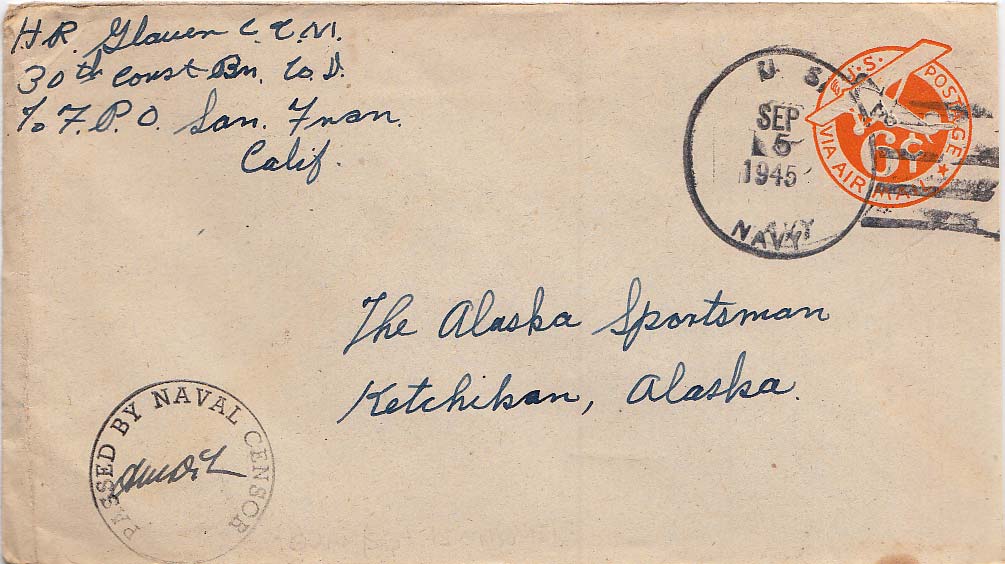 H.R. Glauen C.C.M.
30th Const Bn. Co. D.
℅ F.P.O. San. Fran.
Calif.
U.S.
SEP
5
1945
NAVY
U.S. POSTAGE
6¢
VIA AIR MAIL
The Alaska Sportsman
Ketchikan, Alaska.
PASSED BY NAVAL CENSOR